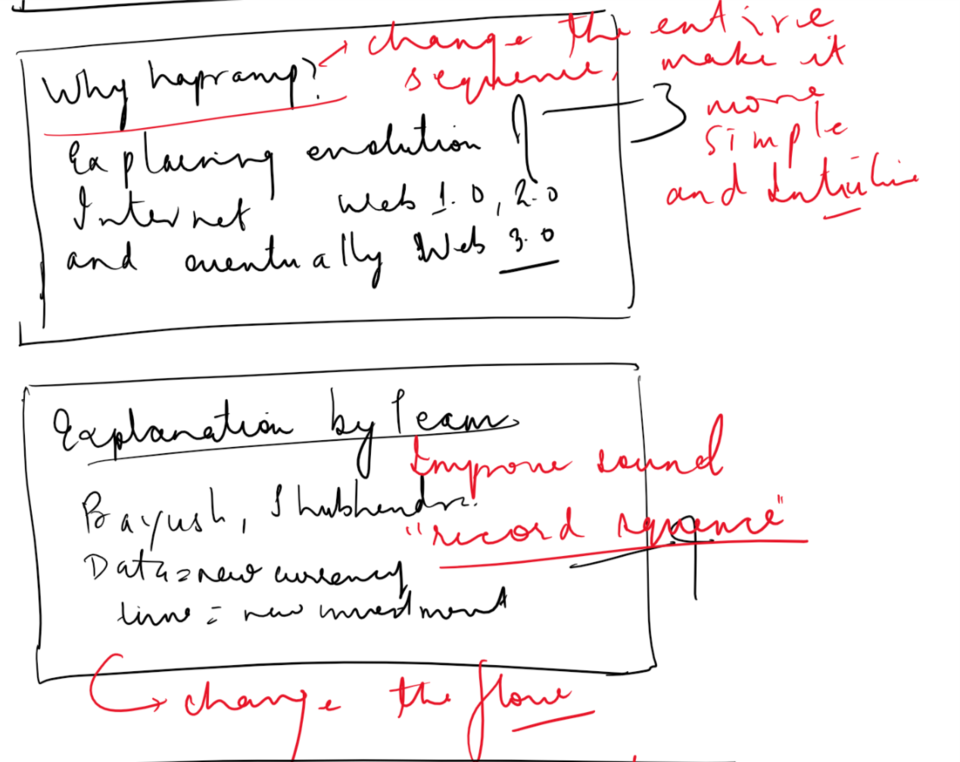 Why hapramp?
change the entire
sequence, make it
more
simple
and intuitive
3
Explaining evolution of
Internet Web 1.0, 2.0
and eventually Web 3.0
Explanation by Team
Improve sound
"record sequence"
Shubhendra
Data = new currency
time = new investment
9
change the flow